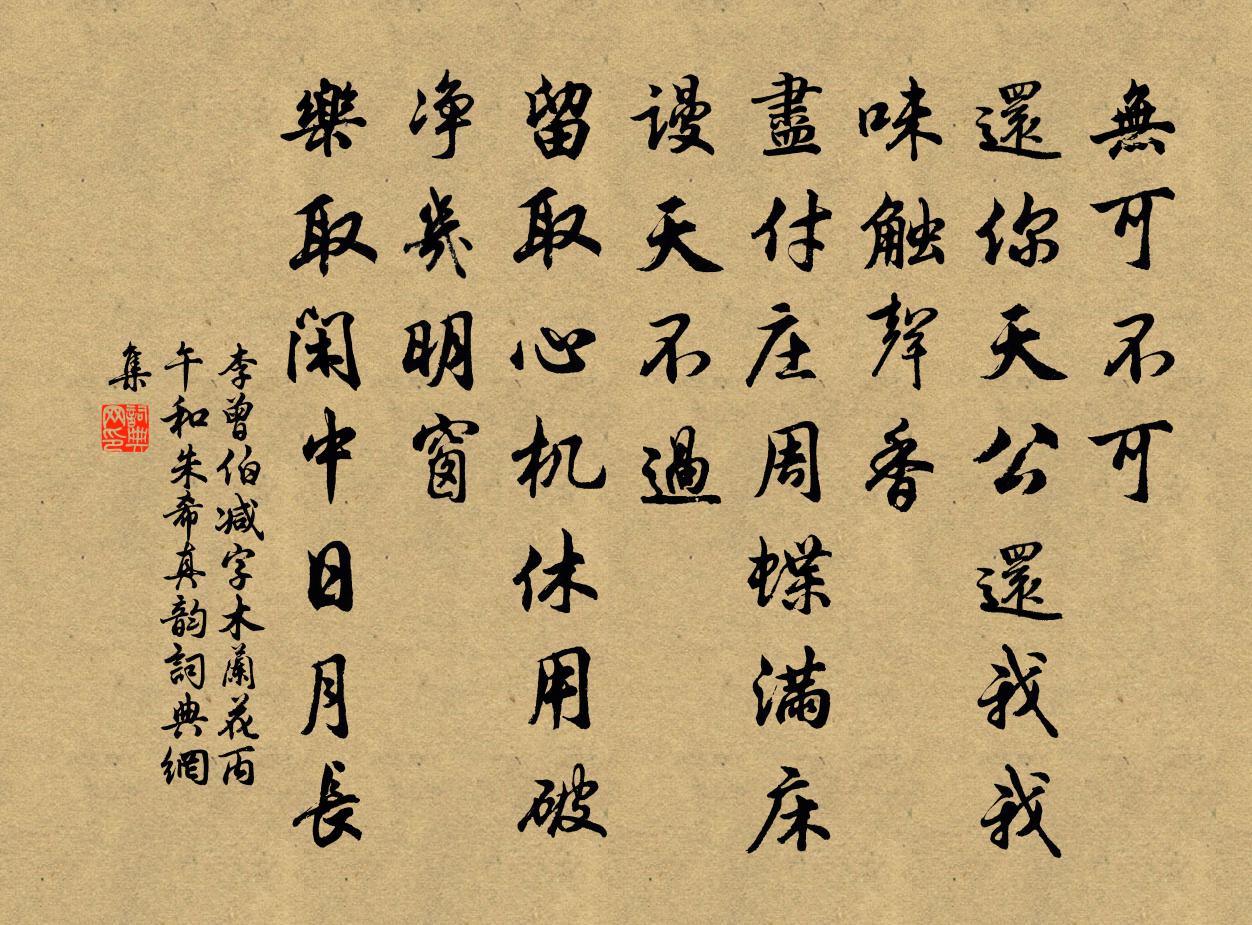 無可不可
還你天公還我我
味触聲香
盡付庄周蝶滿床
谩天不過
留取心机休用破
净幾明窗
樂取閑中日月長
李曾伯减字木蘭花丙
午和朱希真韵詞典網
集
詞典網印